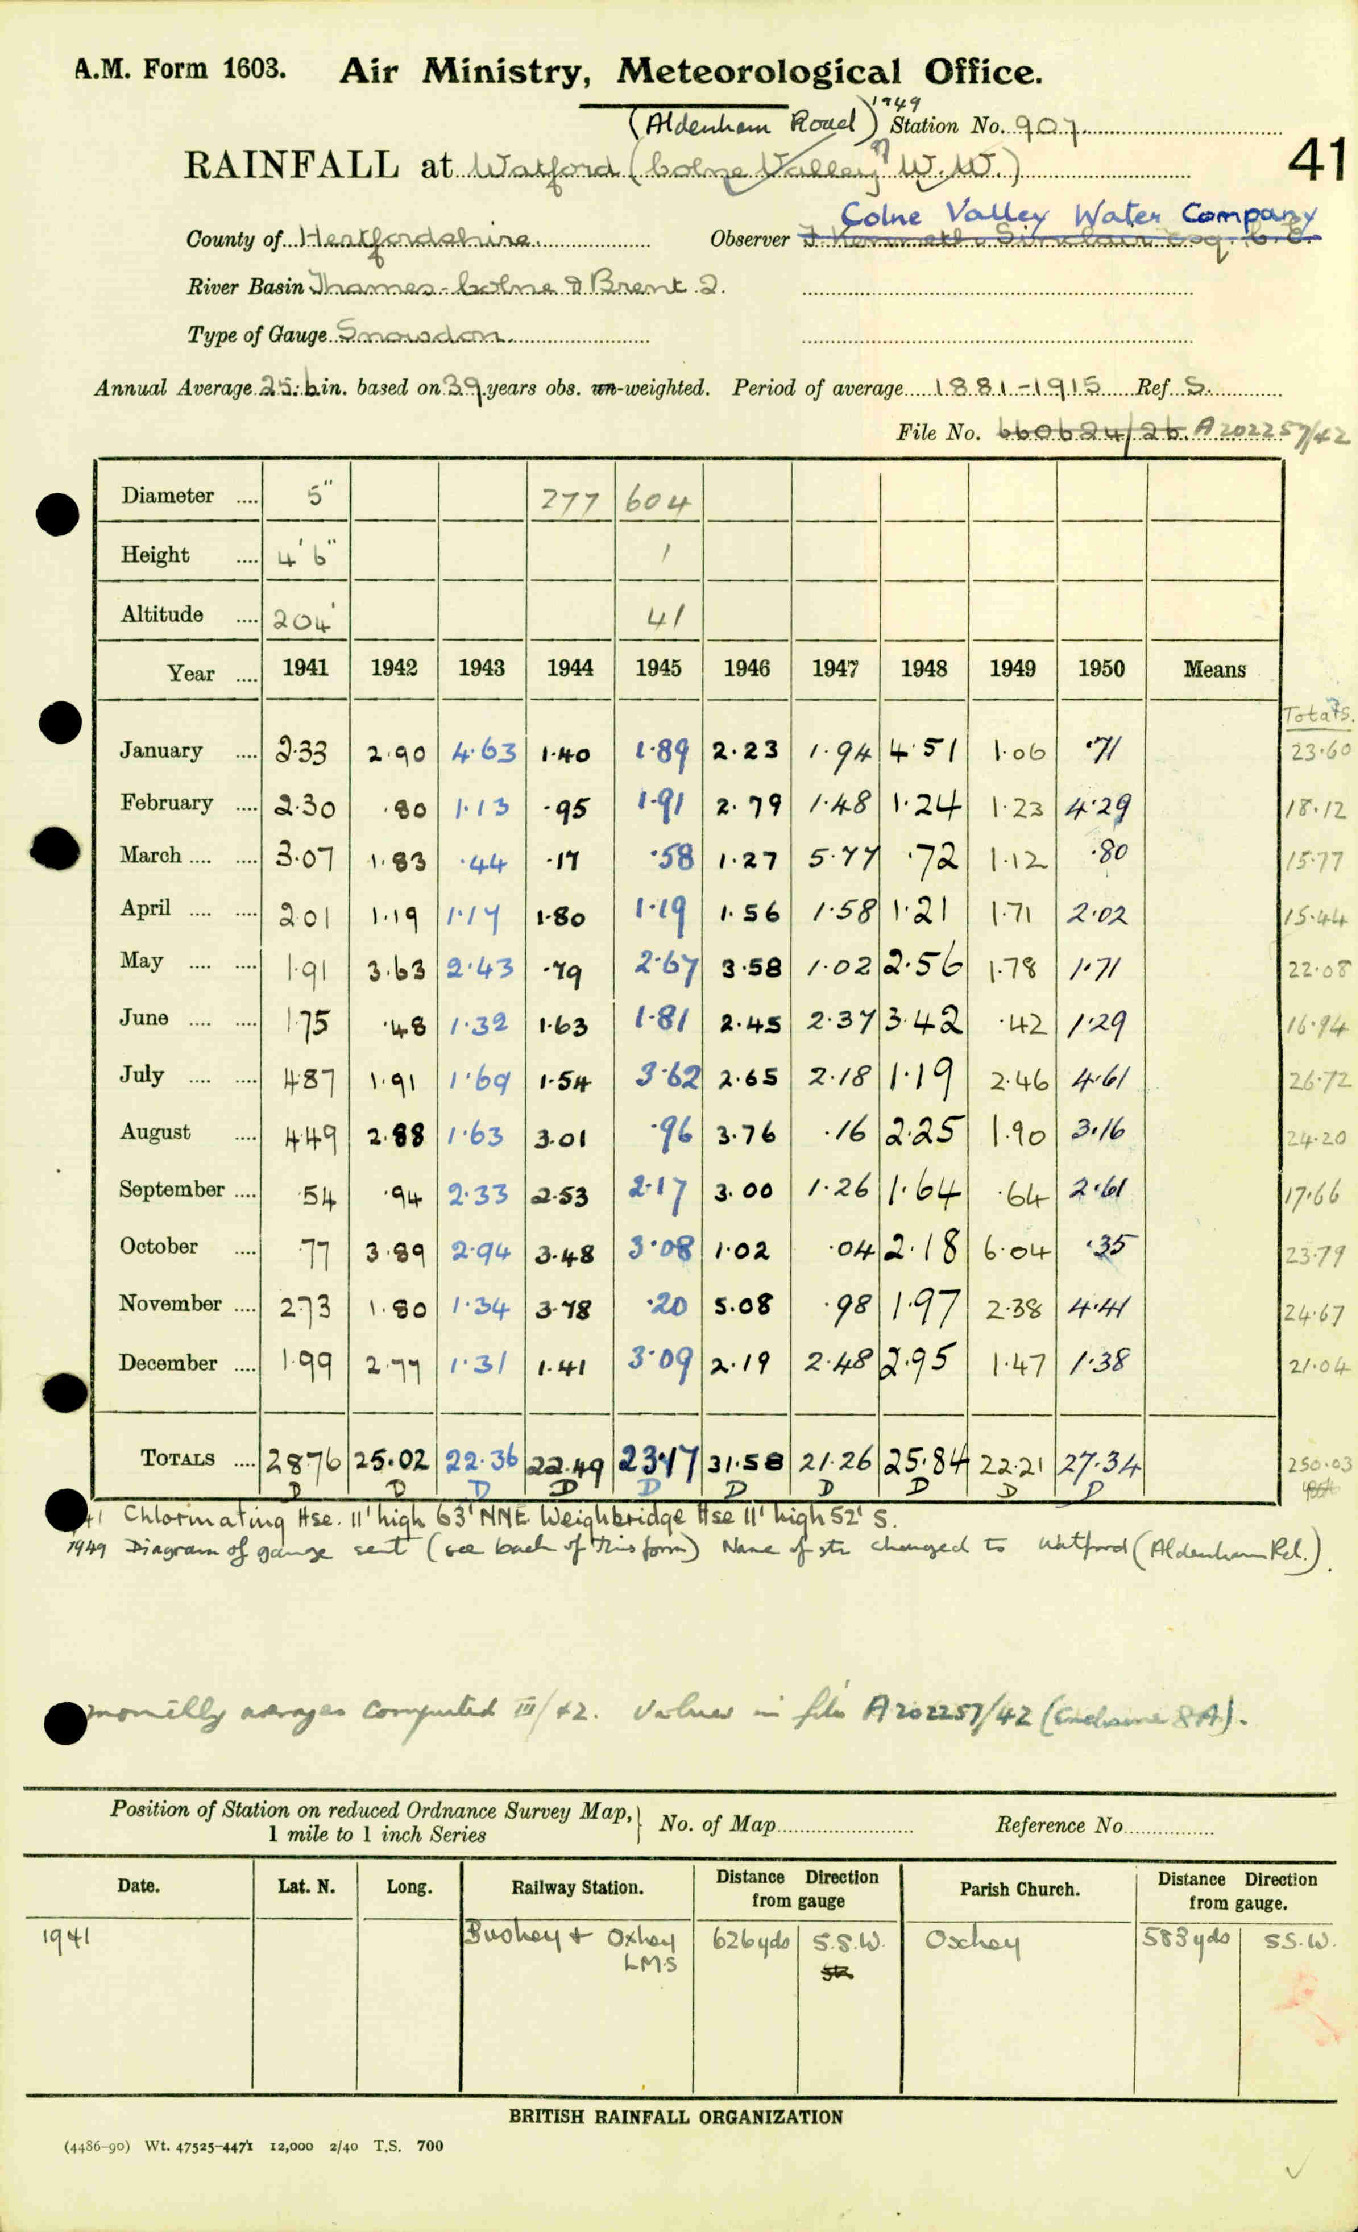 A.M. Form 1603. Air Ministry, Meteorological Office.
(Aldenham Road) 1949 Station No. 907
41
RAINFALL at Watford (Colne Valley W.W.)
Colne Valley Water Company
County of Hertfordshire. Observer F. Kenneth Sinclair Esq. C.E.
River Basin Thames-Colne & Brent 2.
Type of Gauge Snowdon.
Annual Average 25.6 in. based on 39 years obs. un-weighted. Period of average 1881-1915 Ref S.
File No. 660624/26. A202257/42
Diameter .... 5" 277 604
Height .... 4' 6" 1
Altitude .... 204' 41
Year .... 1941 1942 1943 1944 1945 1946 1947 1948 1949 1950 Means
Totals.
January .... 2.33 2.90 4.63 1.40 1.89 2.23 1.94 4.51 1.06 .71 23.60
February .... 2.30 .80 1.13 .95 1.91 2.79 1.48 1.24 1.23 4.29 18.12
March .... .... 3.07 1.83 .44 .17 .58 1.27 5.77 .72 1.12 .80 15.77
April .... .... 2.01 1.19 1.17 1.80 1.19 1.56 1.58 1.21 1.71 2.02 15.44
May .... .... 1.91 3.63 2.43 .79 2.67 3.58 1.02 2.56 1.78 1.71 22.08
June .... .... 1.75 .48 1.32 1.63 1.81 2.45 2.37 3.42 .42 1.29 16.94
July .... .... 4.87 1.91 1.69 1.54 3.62 2.65 2.18 1.19 2.46 4.61 26.72
August .... 4.49 2.88 1.63 3.01 .96 3.76 .16 2.25 1.90 3.16 24.20
September .... .54 .94 2.33 2.53 2.17 3.00 1.26 1.64 .64 2.61 17.66
October .... .77 3.89 2.94 3.48 3.08 1.02 .04 2.18 6.04 .35 23.79
November .... 2.73 1.80 1.34 3.78 .20 5.08 .98 1.97 2.38 4.41 24.67
December .... 1.99 2.77 1.31 1.41 3.09 2.19 2.48 2.95 1.47 1.38 21.04
TOTALS .... 28.76 25.02 22.36 22.49 23.17 31.58 21.26 25.84 22.21 27.34 250.03
D D D D D D D D D D
41 Chlorinating Hse. 11' high 63' NNE Weighbridge Hse 11' high 52' S.
1949 Diagram of gauge sent (see back of this form) Name of stn changed to Watford (Aldenham Rd.).
monthly averages computed III/42. Values in file A202257/42 (Enclosure 8A).
Position of Station on reduced Ordnance Survey Map, 1 mile to 1 inch Series } No. of Map Reference No
Date. Lat. N. Long. Railway Station. Distance Direction from gauge Parish Church. Distance Direction from gauge.
1941 Bushey & Oxhey LMS 626yds S.S.W. Oxhey 583yds S.S.W.
BRITISH RAINFALL ORGANIZATION
(4486-90) Wt. 47525-4471 12,000 2/40 T.S. 700